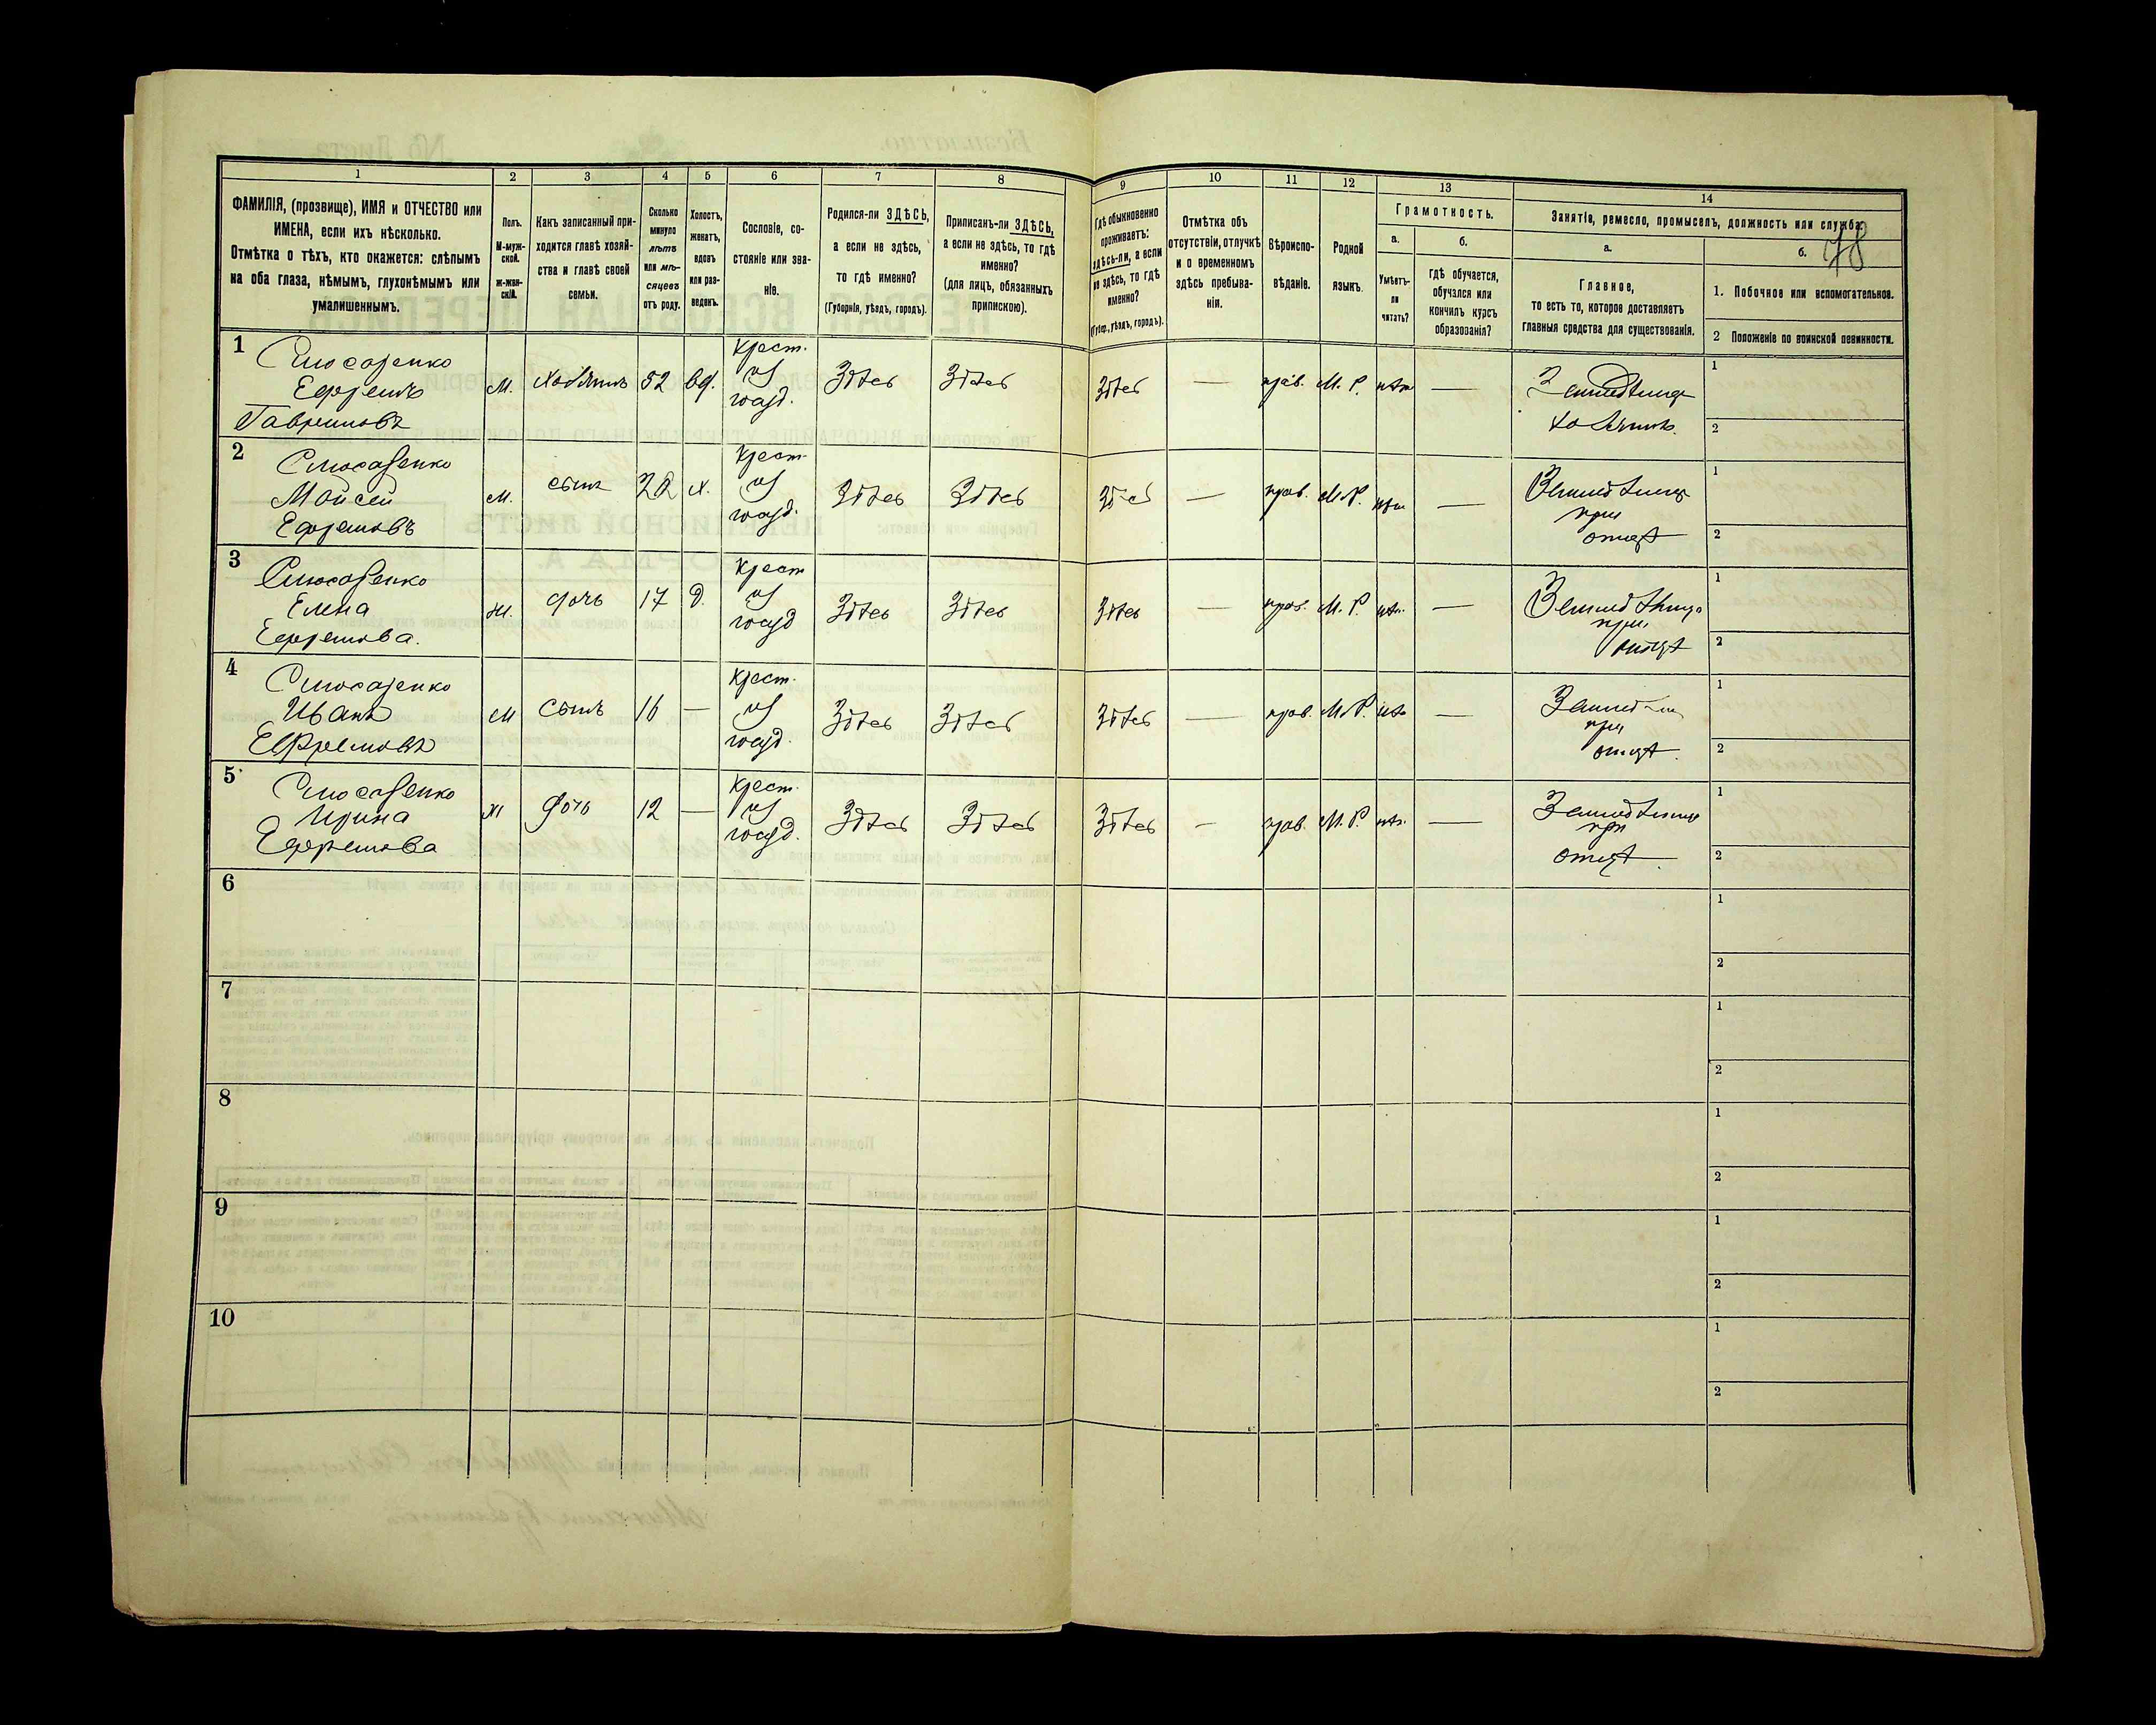 78
1 2 3 4 5 6 7 8 9 10 11 12 13 14
ФАМИЛІЯ, (прозвище), ИМЯ и ОТЧЕСТВО или
ИМЕНА, если ихъ нѣсколько.
Отмѣтка о тѣхъ, кто окажется: слѣпымъ
на оба глаза, нѣмымъ, глухонѣмымъ или
умалишеннымъ.
Полъ.
М-муж-
ской.
ж-жен-
скій.
Какъ записанный при-
ходится главѣ хозяй-
ства и главѣ своей
семьи.
Сколько
минуло
лѣтъ
или мѣ-
сяцевъ
отъ роду.
Холостъ,
женатъ,
вдовъ
или раз-
веденъ.
Сословіе, со-
стояніе или зва-
ніе.
Родился-ли ЗДѢСЬ,
а если не здѣсь,
то гдѣ именно?
(Губернія, уѣздъ, городъ).
Приписанъ-ли ЗДѢСЬ,
а если не здѣсь, то гдѣ
именно?
(для лицъ, обязанныхъ
припискою).
Гдѣ обыкновенно
проживаетъ:
здѣсь-ли, а если
не здѣсь, то гдѣ
именно?
(Губер., уѣздъ, городъ).
Отмѣтка объ
отсутствіи, отлучкѣ
и о временномъ
здѣсь пребыва-
ніи.
Вѣроиспо-
вѣданіе.
Родной
языкъ.
Грамотность.
а.
Умѣетъ-
ли
читать?
б.
гдѣ обучается,
обучался или
кончилъ курсъ
образованія?
Занятія, ремесло, промыселъ, должность или служба.
а.
Главное,
то есть то, которое доставляетъ
главныя средства для существованія.
б.
1. Побочное или вспомогательное.
2 Положеніе по воинской повинности.
1
Слюсаренко
Ефремъ
Гавриловъ
М. хозяинъ 52 вд.
Крест.
из
госуд.
Здѣсь Здѣсь Здѣсь — прав. М. Р. нѣтъ —
Земледѣлецъ
хозяинъ.
1
2
2
Слюсаренко
Мойсей
Ефремовъ
М. сынъ 22 х.
Крест.
из
госуд.
Здѣсь Здѣсь Здѣсь — прав. М.Р. нѣтъ —
Земледѣлецъ
при
отцѣ
1
2
3
Слюсаренко
Елена
Ефремова.
Ж. дочь 17 д.
Крест
из
госуд
Здѣсь Здѣсь Здѣсь — прав. М. Р. нѣтъ —
при
отцѣ
1
2
4
Слюсаренко
Иванъ
Ефремовъ
М сынъ 16 —
Крест.
из
госуд.
Здѣсь Здѣсь Здѣсь — прав. М.Р. нѣтъ —
при
отцѣ.
1
2
5
Слюсаренко
Ирина
Ефремова
Ж дочь 12 —
Крест.
из
госуд.
Здѣсь Здѣсь Здѣсь — прав. М.Р. нѣтъ —
при
отцѣ.
1
2
6
1
2
7
1
2
8
1
2
9
1
2
10
1
2